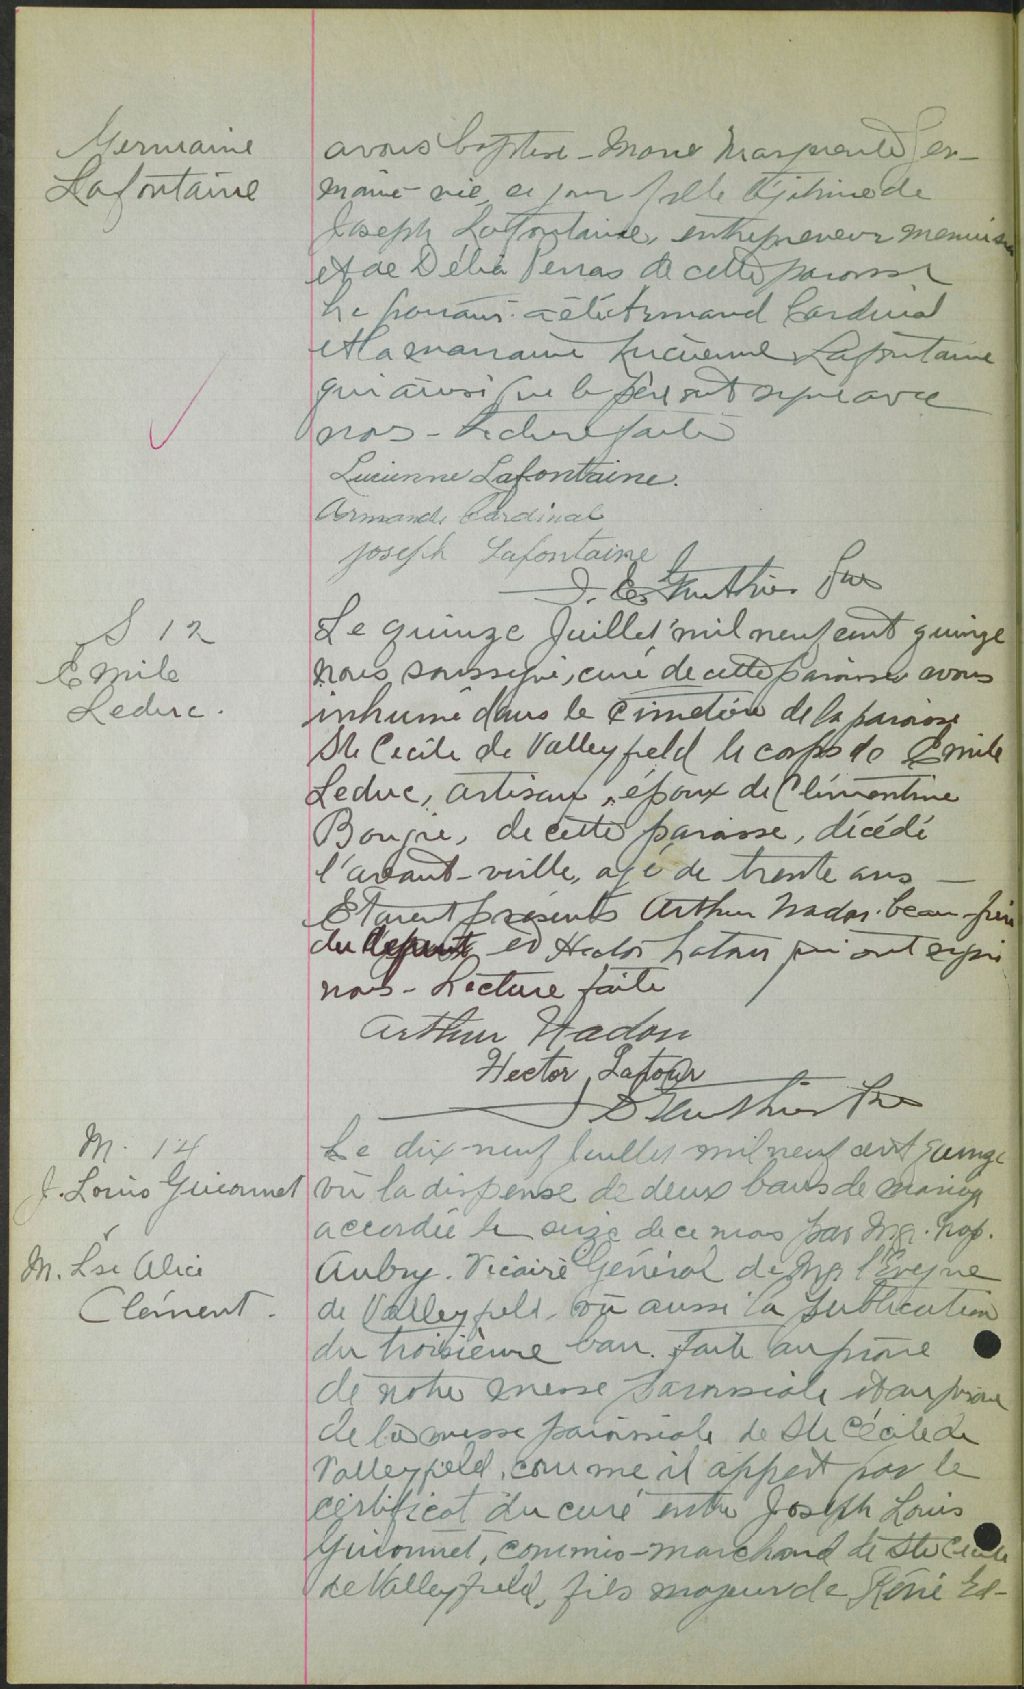 Germaine
Lafontaine
avons baptisé - Marie Marguerite Ger-
maine née ce jour fille légitime de
Joseph Lafontaine, entrepreneur menuisier
et de Délia Perras de cette paroisse
Le parrain a été Armand Cardinal
et la marraine Lucienne Lafontaine
qui ainsi que le père ont signé avec
nous - Lecture faite
Lucienne Lafontaine.
Armande Cardinal
Joseph Lafontaine
J. E. Gauthier Ptre
S 12
Emile
Leduc.
Le quinze Juillet mil neuf cent quinze
nous soussigné, curé de cette paroisse avons
inhumé dans le cimetière de la paroisse
Ste Cécile de Valleyfield le corps de Emile
Leduc, artisan, époux de Clémentine
Bougie, de cette paroisse, décédé
l'avant-veille, agé de trente ans —
Etaient présents Arthur Nadon beau-frère
du défunt et Hector Latour qui ont signé
nous - Lecture faite
Arthur Nadon
Hector Latour
J E Gauthier Ptre
M. 14
J. Louis Guionnet
&
M. Lse Alice
Clément.
Le dix-neuf Juillet mil neuf cent quinze
vu la dispense de deux bans de mariage
accordée le seize de ce mois par Mgr.
Aubry. Vicaire Général de Mgr l'Evêque
de Valleyfield, vu aussi la publication
du troisième ban faite au prône
de notre messe paroissiale et au prône
de la messe paroissiale de Ste Cécile de
Valleyfield, comme il appert par le
certificat du curé entre Joseph Louis
Guionnet, commis-marchand de Ste Cécile
de Valleyfield, fils majeur de Réné Ed-